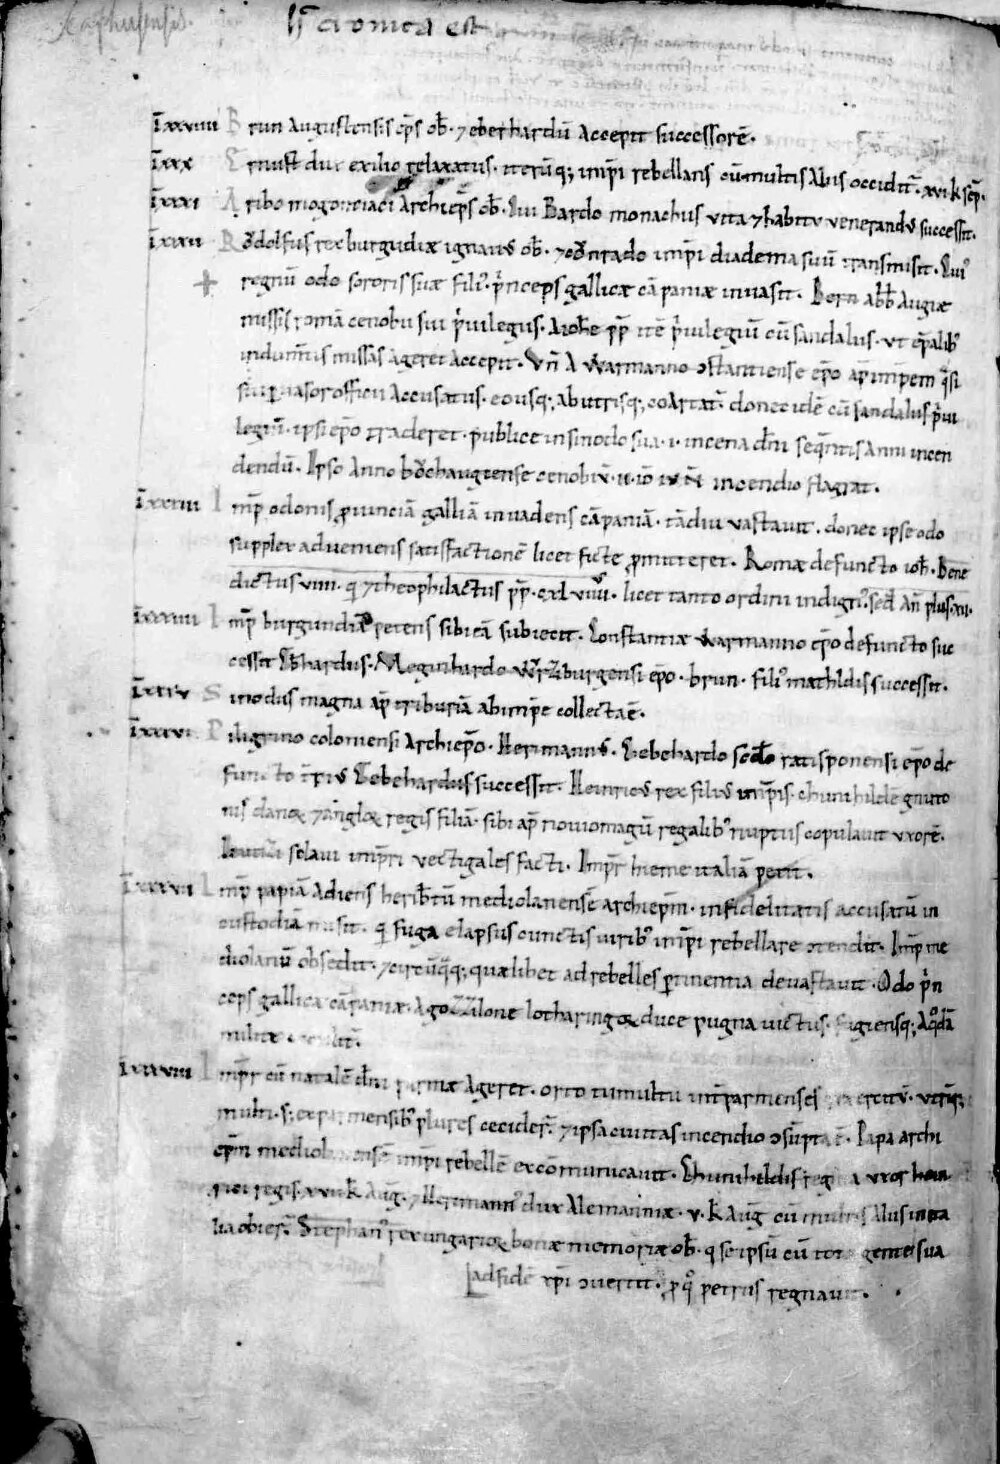 hec cronica est
Īxxviiii Brun augustensis ep̄s ob̄. ⁊ eberhardū accepit successorē.
Īxxx Ernust dux exilio relaxatus. iterūq; imp̄i rebellans cū multis aliis occidit̄. xvi k sep̄.
Īxxxi Aribo mogontiaci archiep̄s ob̄. Cui Bardo monachus vita ⁊ habitu venerandus successit.
Īxxxii Rodolfus rex burgundiæ ignavus ob̄. ⁊ cuonrado imp̄i diadema suū transmisit. Cui'
regnū odo sororis suæ fili'. p̄nceps gallicæ cāpaniæ invasit. Bern abb̄ augiæ
missis romā cenobii sui p̄vilegiis. a ioh̄e pp̄ itē p̄vilegiū cū sandaliis. ut ep̄alib'
indum̄tis missas ageret accepit. Un̄ a warmanno ɔstantiense ep̄o ap̄ imp̄em q̄si
sui p̄vasor officii accusatus. eo usq; ab utrisq; coartat̄. donec idē cū sandaliis p̄vi
legiū. ipsi ep̄o traderet. publice in sinodo sua .i. in cena dn̄i seq̄ntis anni incen
dendū. Ipso anno buochaugiense cenobiū .ii. id iun̄ incendio flagrat.
Īxxxiii Imp̄ odonis ꝓvinciā galliā invadens cāpaniā. tādiu vastavit. donec ipse odo
supplex adveniens satisfactionē licet ficte ꝓmitteret. Romæ defuncto ioh̄. Bene
dictus viiii. q̄ ⁊ theophilactus pp̄ cxlviiii. licet tanto ordini indign'. sed̄ an̄ plus xii.
Īxxxiiii Imp̄ burgundiā petens sibi eā subiecit. Constantiæ warmanno ep̄o defuncto suc
cessit Eb̄hardus. Meginhardo wirziburgensi ep̄o. brun. fili' mathildis successit.
Īxxxv Sinodus magna ap̄ triburiā ab imp̄e collecta ē.
Īxxxvi Piligrino coloniensi archiep̄o. Herimannus. Gebehardo sedo ratisponensi ep̄o de
functo t̄tius Gebehardus successit. Heinricus rex filius imp̄is. chunihildē gnuto
nis danoꝝ ⁊ angloꝝ regis filiā. sibi ap̄ noviomagū regalib' nuptiis copulavit uxorē.
Liutizi sclavi imp̄ri vectigales facti. Imp̄r hieme italiā petit.
Īxxxvii Imp̄ papiā adiens herib̄tū mediolanensē archiep̄m. infidelitatis accusatū in
custodiā misit. q̄ fuga elapsus cunctis virib' imp̄i rebellare ɔtendit. Imp̄ me
diolanū obsedit. ⁊ circūq̄q; quælibet ad rebelles ꝑtinentia devastavit. Odo p̄n
ceps gallicæ cāpaniæ. a gozzilone lotharingoꝝ duce pugna victus. fugiensq; a q̄dā
milite occidit̄.
Īxxxviii Imp̄r cū natalē dn̄i parmæ ageret. orto tumultu int̄ parmenses ⁊ exercitū. utriq;
multi. s; ex parmensib' plures ceciderт̄. ⁊ ipsa civitas incendio ɔsūpta ē. Papa archi
ep̄m mediolanensē imp̄i rebellē excōmunicavit. Chunihildis regina uxor hein
rici regis. xvi k aug̅. ⁊ Herimann' dux alemanniæ. v. k aug̅ cū multis aliis in ita
lia obiert̄. Stephan' rex ungarioꝝ bonæ memoriæ ob̄. q̄ se ipsū cū tota gente sua
ad fidē xp̄i ɔvertit. ꝓ q̊ petrus regnavit.